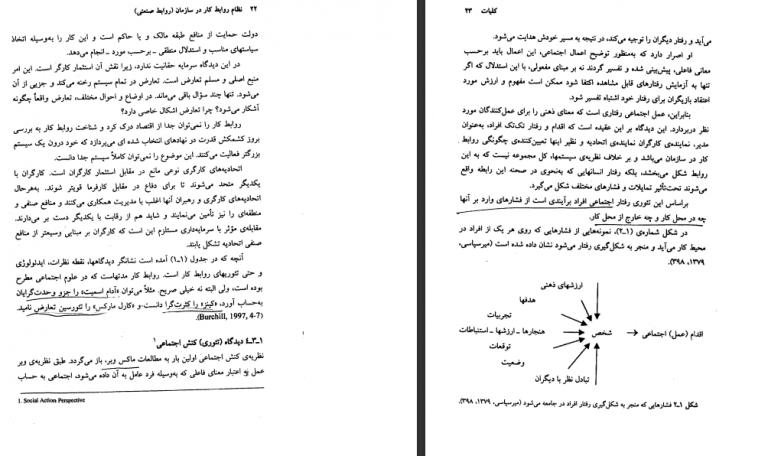 ۲۲ نظام روابط کار در سازمان (روابط صنعتی)
دولت حمایت از منافع طبقه مالک و یا حاکم است و این کار را به‌وسیله اتخاذ
سیاستهای مناسب و استدلال منطقی ـ برحسب مورد ـ انجام می‌دهد.
در این دیدگاه سرمایه حقانیت ندارد، زیرا نقش آن استثمار کارگر است. این امر
منبع اصلی و مسلم تعارض است. تعارض در تمام سیستم رخنه می‌کند و جزیی از آن
می‌شود. تنها چند سؤال باقی می‌ماند. در اوضاع و احوال مختلف، تعارض واقعاً چگونه
آشکار می‌شود؟ چرا تعارض اشکال خاصی دارد؟
روابط کار را نمی‌توان جدا از اقتصاد درک کرد و شناخت روابط کار به بررسی
بروز کشمکش قدرت در نهادهای انتخاب شده ای می‌پردازد که خود درون یک سیستم
بزرگتر فعالیت می‌کنند. این موضوع را نمی‌توان کاملاً سیستم جدا دانست.
اتحادیه‌های کارگری نوعی مانع در مقابل استثمار کارگران است. کارگران با
یکدیگر متحد می‌شوند تا برای دفاع در مقابل کارفرما قویتر شوند. به‌هرحال
اتحادیه‌های کارگری و رهبران آنها اغلب با مدیریت همکاری می‌کنند و منافع صنفی و
منطقه‌ای را نیز تأمین می‌نمایند و شاید هم از رقابت با یکدیگر دست بر می‌دارند.
مقابله‌ی مؤثر با سرمایه‌داری مستلزم این است که کارگران بر مبنایی وسیعتر از منافع
صنفی اتحادیه تشکل یابند.
آنچه که در جدول (۱ـ۱) آمده است نشانگر دیدگاهها، نقطه نظرات، ایدئولوژی
و حتی تئوریهای روابط کار است. روابط کار مدتهاست که در علوم اجتماعی مطرح
بوده است، ولی البته نه خیلی صریح. مثلاً می‌توان «آدام اسمیت» را جزو وحدت‌گرایان
به‌حساب آورد، «کینز» را کثرت‌گرا دانست و «کارل مارکس» را تئورسین تعارض نامید.
(Burchill, 1997, 4-7).
۱ـ۳ـ۴ دیدگاه (تئوری) کنش اجتماعی¹
نظریه‌ی کنش اجتماعی اولین بار به مطالعات ماکس وبر، باز می‌گردد. طبق نظریه‌ی وبر
عمل به اعتبار معنای فاعلی که به‌وسیله فرد عامل به آن داده می‌شود، اجتماعی به حساب
1. Social Action Perspective
کلیات ۲۳
می‌آید و رفتار دیگران را توجیه می‌کند، در نتیجه به مسیر خودش هدایت می‌شود.
او اصرار دارد که به‌منظور توضیح اعمال اجتماعی، این اعمال باید برحسب
معانی فاعلی، پیش‌بینی شده و تفسیر گردند نه بر مبنای مفعولی، با این استدلال که اگر
تنها به آزمایش رفتارهای قابل مشاهده اکتفا شود ممکن است مفهوم و ارزش مورد
اعتقاد بازیگران برای رفتار خود اشتباه تفسیر شود.
بنابراین، عمل اجتماعی رفتاری است که معنای ذهنی را برای عمل‌کنندگان مورد
نظر دربردارد. این دیدگاه بر این عقیده است که اقدام و رفتار تک‌تک افراد، به‌عنوان
مدیر، نماینده‌ی کارگران نماینده‌ی اتحادیه و نظیر اینها تعیین‌کننده‌ی چگونگی روابط
کار در سازمان می‌باشد و بر خلاف نظریه‌ی سیستمها، کل مجموعه نیست که به این
روابط شکل می‌بخشد، بلکه رفتار انسانهایی که به‌نحوی در صحنه این رابطه واقع
می‌شوند تحت‌تأثیر تمایلات و فشارهای مختلف شکل می‌گیرد.
براساس این تئوری رفتار اجتماعی افراد برآیندی است از فشارهای وارد بر آنها
چه در محل کار و چه خارج از محل کار.
در شکل شماره‌ی (۱ـ۲)، نمونه‌هایی از فشارهایی که روی هر یک از افراد در
محیط کار می‌آید و منجر به شکل‌گیری رفتار می‌شود نشان داده شده است (میرسپاسی،
۱۳۷۹، ۳۹۸).
ارزشهای ذهنی
هدفها
تجربیات
هنجارها ـ ارزشها ـ استنباطات
شخص
اقدام (عمل) اجتماعی
توقعات
وضعیت
تبادل نظر با دیگران
شکل ۱ـ۲ فشارهایی که منجر به شکل‌گیری رفتار افراد در جامعه می‌شود (میرسپاسی، ۱۳۷۹، ۳۹۸).